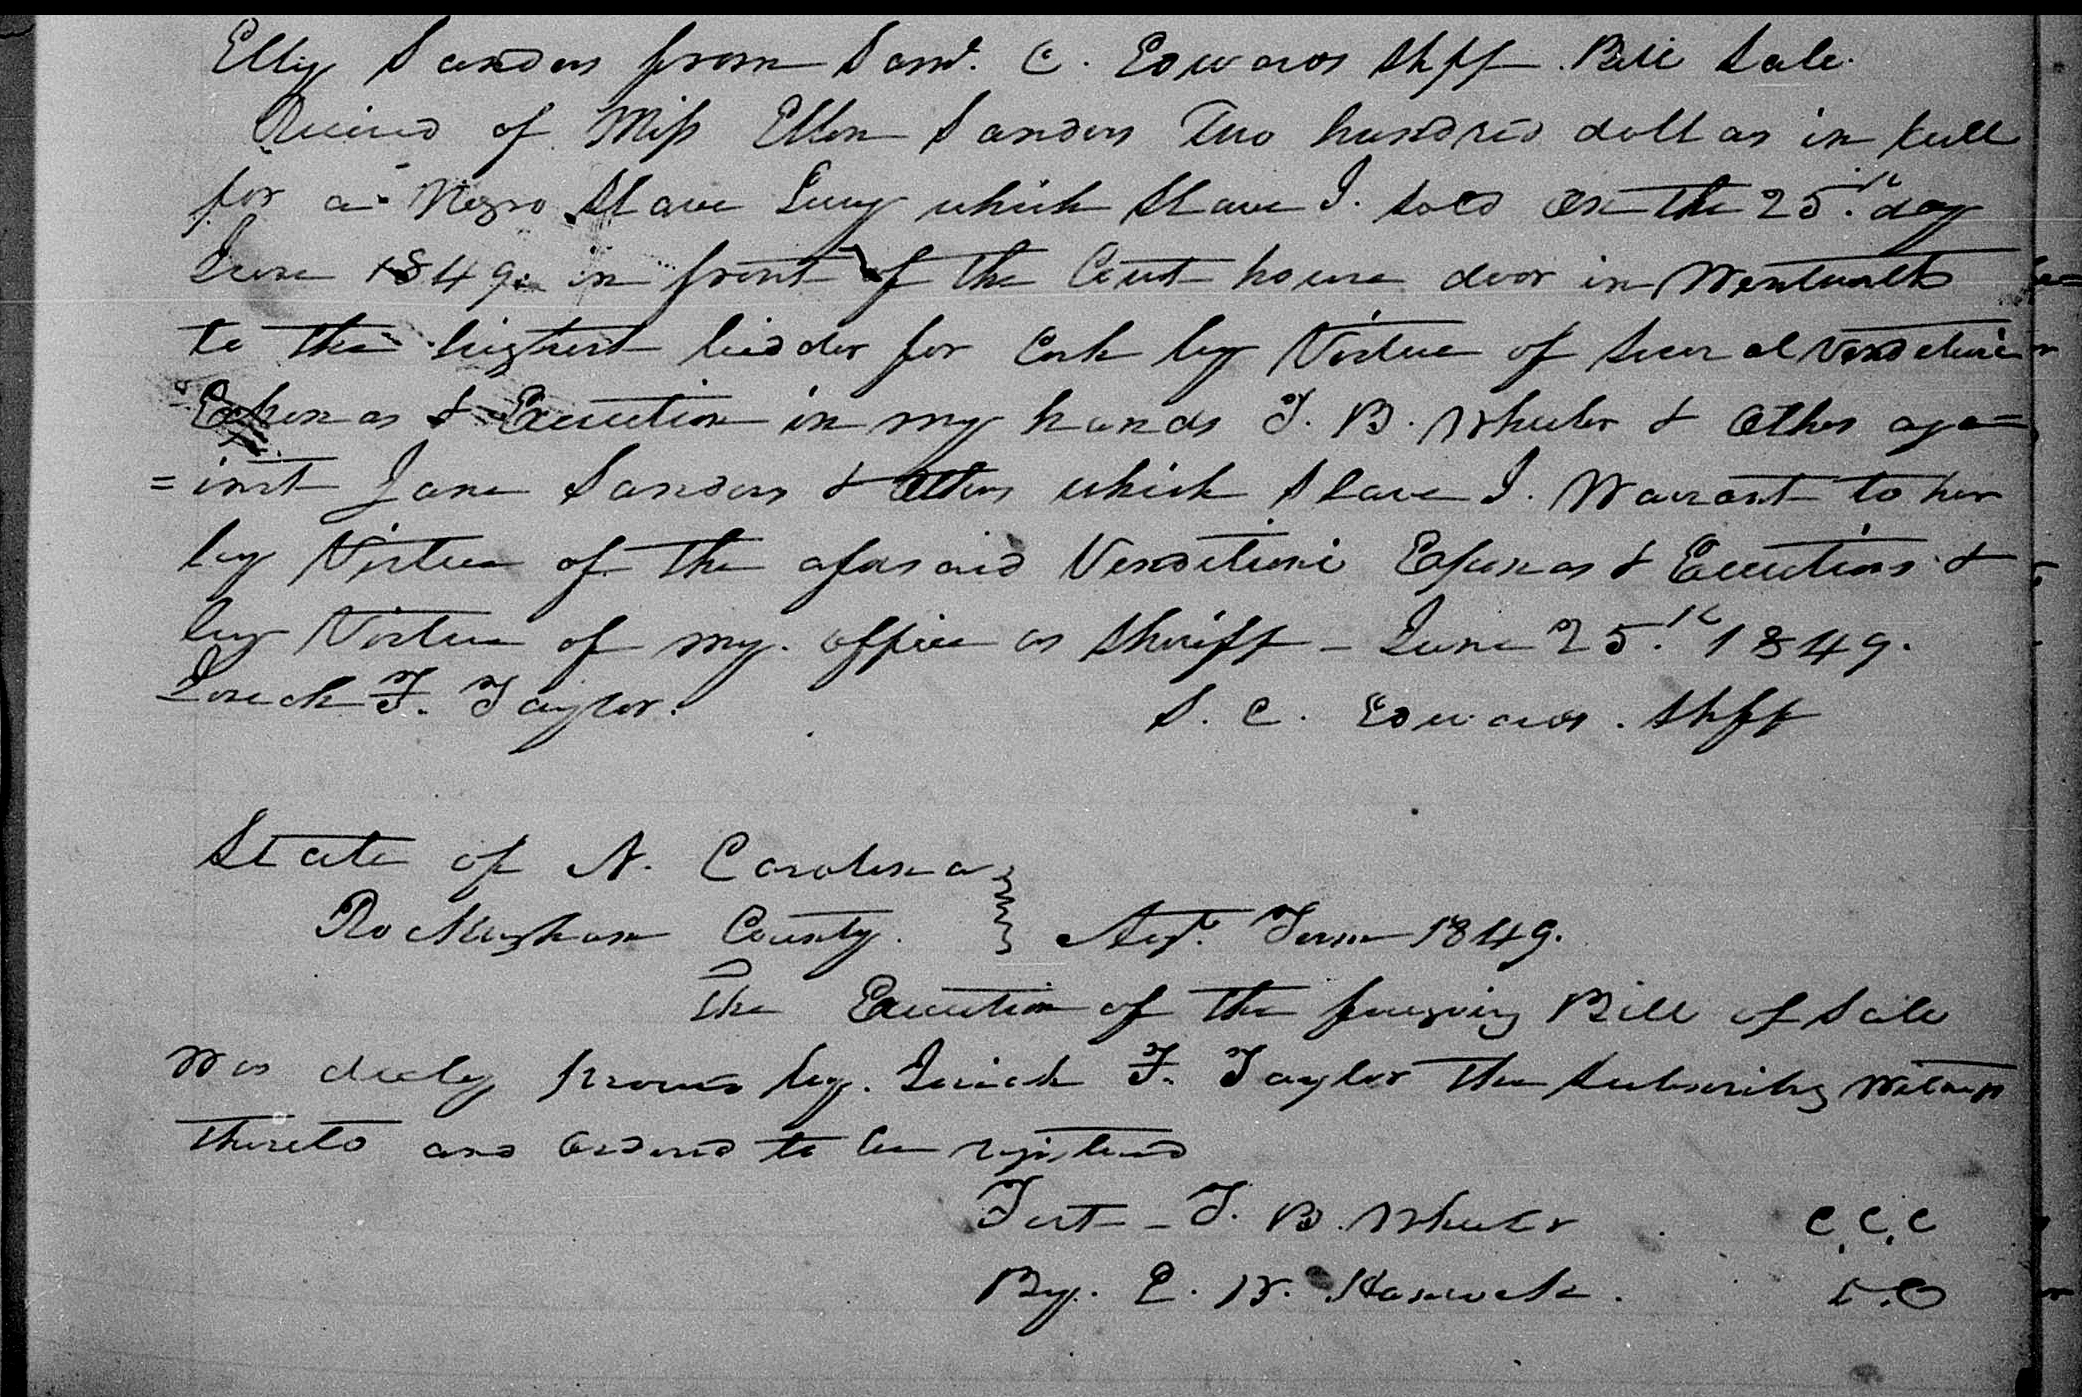 Elley Sanders from Saml. C. Edwards Shff Bill Sale.
Received of Miss Ellen Sanders Two hundred dollars in full
for a Negro Slave Lucy which Slave I. Sold on the 25.th day
June 1849. in front of the Court house door in Wentworth
to the highest bidder for Cash by Virtue of Several Venditioni
Exponas & Execution in my hands T. B. Wheeler & others aga=
=inst Jane Sanders & others which Slave I. Warrant to her
by Virtue of the aforesaid Venditioni Exponas & Executions &
by Virtue of my. office as Sheriff – June 25.th 1849.
F. Taylor. S. C. Edwards. Shff
State of N. Carolina
Rockingham County. Augt. Term 1849.
The Execution of the foregoing Bill of Sale
was duely proven by. F. Taylor the Subscribing Witness
thereto and ordered to be registered
Test – T. B. Wheeler C.C.C
By. E. W. D.C